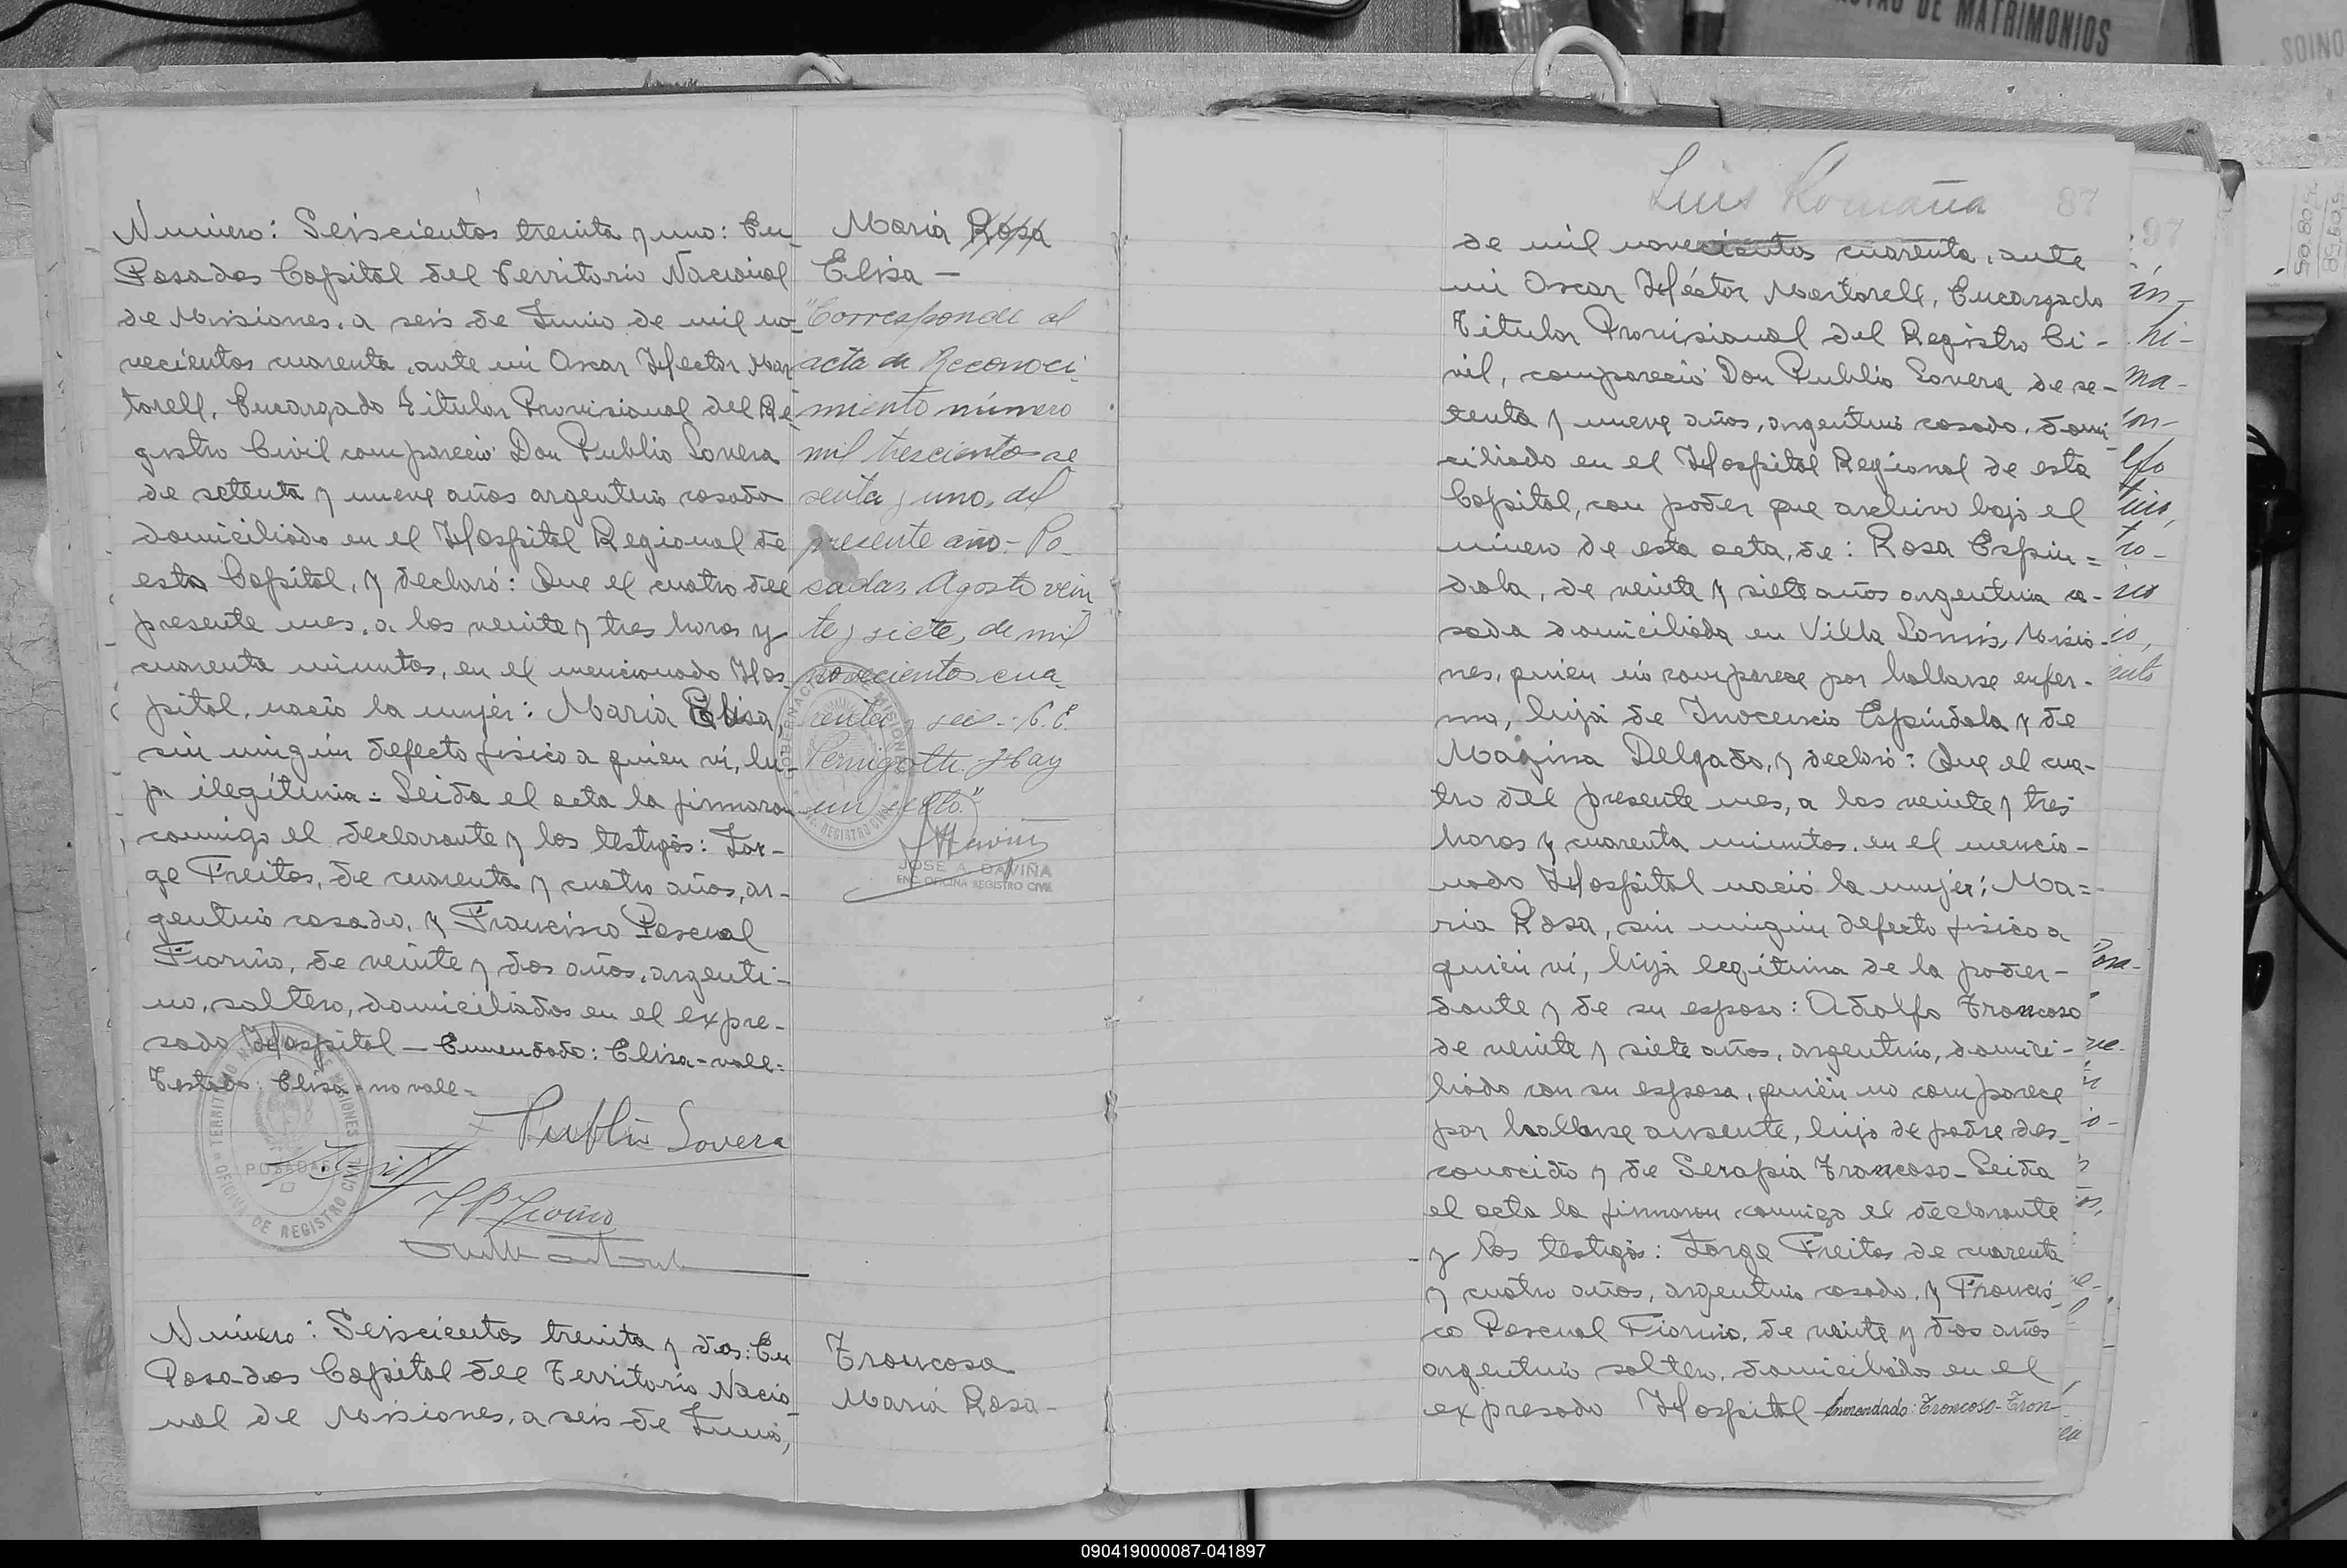 DE MATRIMONIOS
Número: Seiscientos treinta y uno: En
Posadas Capital del Territorio Nacional
de Misiones, a seis de Junio de mil no-
vecientos cuarenta, ante mi Oscar Héctor Mar
torell, Encargado Titular Provisional del Re-
gistro Civil compareció Don Publio Lovera
de setenta y nueve años argentino casado
domiciliado en el Hospital Regional de
esta Capital, y declaró: Que el cuatro del
presente mes, a las veinte y tres horas y
cuarenta minutos, en el mencionado Hos-
pital, nació la mujer: Maria Elisa,
sin ningún defecto fisico a quien vi, hi-
ja ilegítima = Leida el acta la firmaron
conmigo el declarante y los testigos: Jor-
ge Freitas, de cuarenta y cuatro años, ar-
gentino casado, y Francisco Pascual
Fiorino, de veinte y dos años, argenti-
no, soltero, domiciliados en el expre-
sado Hospital — Enmendado: Elisa - vale -
Testado: Elisa - no vale -
Publio Lovera
TERRITORIO NACIONAL DE MISIONES
POSADAS
OFICINA DE REGISTRO CIVIL
Número: Seiscientos treinta y dos: En
Posadas Capital del Territorio Nacio-
nal de Misiones, a seis de Junio,
Maria Rosa
Elisa —
"Corresponde al
acta de Reconoci-
miento número
mil trescientos se
senta y uno, del
presente año - Po-
sadas, Agosto vein
te y siete, de mil
novecientos cua-
renta y seis -
Pernigotti. Hay
un sello."
JOSE A. DAVIÑA
ENC. OFICINA REGISTRO CIVIL
Troncoso
Maria Rosa -
Luis Romaña
87
97
de mil novecientos cuarenta, ante
mi Oscar Héctor Martorell, Encargado
Titular Provisional del Registro Ci-
vil, compareció Don Publio Lovera de se-
tenta y nueve años, argentino casado, domi
ciliado en el Hospital Regional de esta
Capital, con poder que archivo bajo el
número de esta acta, de: Rosa Espin=
dola, de veinte y siete años argentina ca-
sada domiciliada en Villa Lanús, Misio-
nes, quien no comparece por hallarse enfer-
ma, hija de Inocencio Espíndola y de
Magina Delgado, y declaró: Que el cua-
tro del presente mes, a las veinte y tres
horas y cuarenta minutos, en el mencio-
nado Hospital nació la mujer: Ma=
ria Rosa, sin ningún defecto fisico a
quien vi, hija legítima de la poder-
dante y de su esposo: Adolfo Troncoso
de veinte y siete años, argentino, domici-
liado con su esposa, quién no comparece
por hallarse ausente, hijo de padre des-
conocido y de Serapia Troncoso - Leida
el acta la firmaron conmigo el declarante
y los testigos: Jorge Freitas de cuarenta
y cuatro años, argentino casado, y Francis
co Pascual Fiorino, de veinte y dos años
argentino soltero, domiciliados en el
expresado Hospital - Enmendado: Troncoso - Tron
090419000087-041897